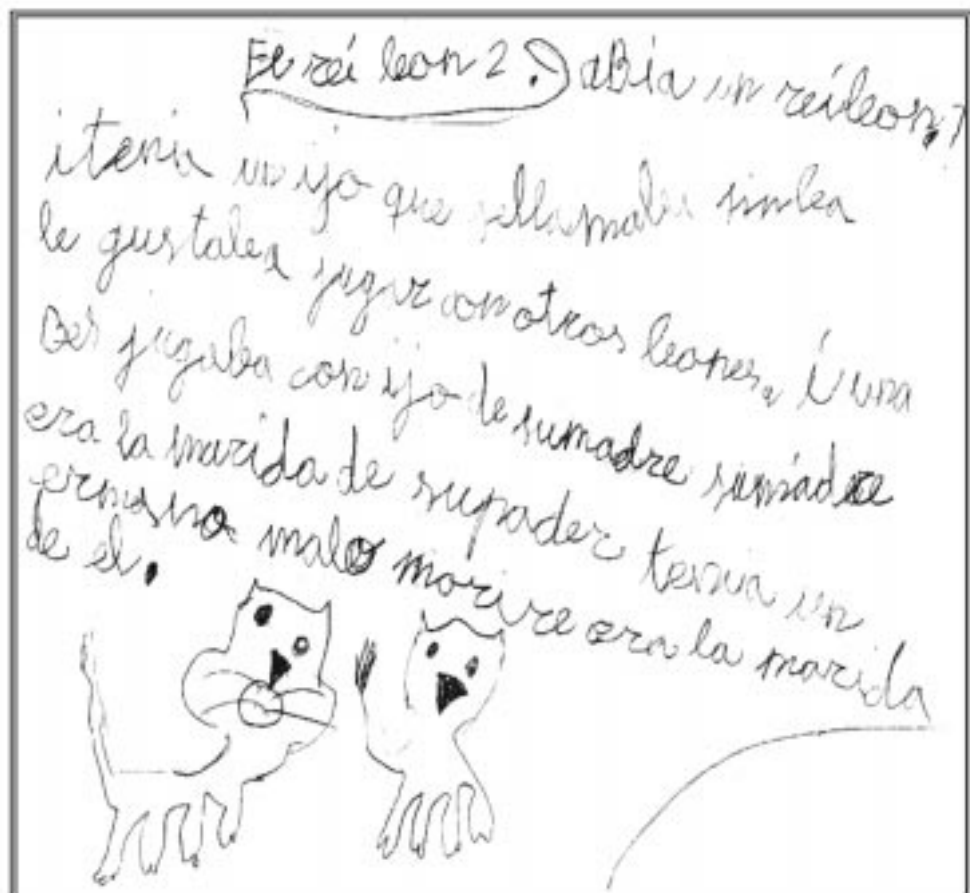 El réi leon 2. aBía un réileon,
i tenia un ijo que sellamaba simba
le gustaba jugar con otros leones. i una
Bes jugaba con ijo de sumadre sumádre
era la marida de supader tenia un
ermano malo morire era la marida
de el.